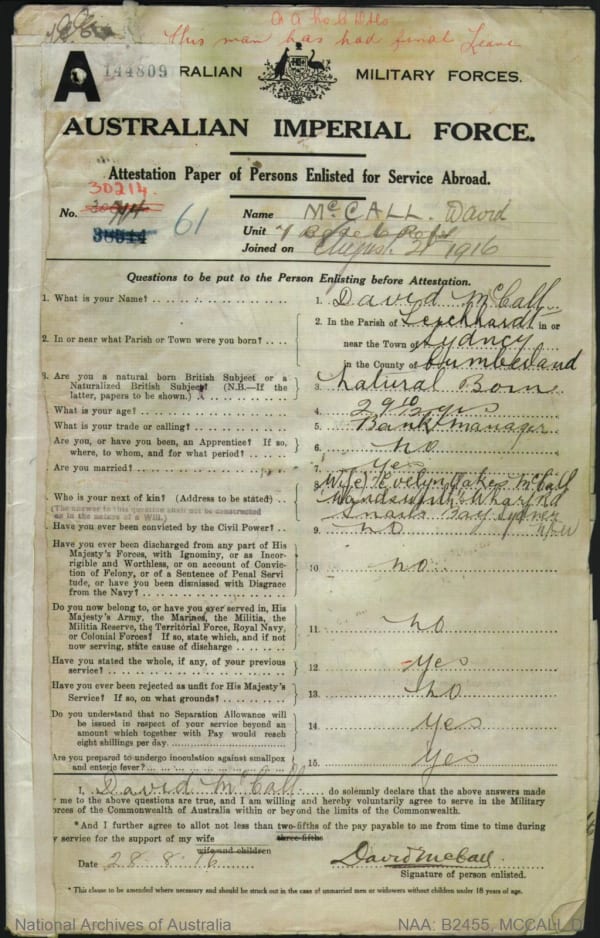 This man has had final Leave
A 144809 RALIAN MILITARY FORCES.
AUSTRALIAN IMPERIAL FORCE.
Attestation Paper of Persons Enlisted for Service Abroad.
30214.
No. 61 Name McCALL. David
38544 Unit
Joined on August 21 1916
Questions to be put to the Person Enlisting before Attestation.
1. What is your Name? 1. David McCall
2. In or near what Parish or Town were you born? 2. In the Parish of Leichhardt in or
near the Town of Sydney
in the County of Cumberland
3. Are you a natural born British Subject or a
Naturalized British Subject? (N.B.—If the
latter, papers to be shown.) 3. Natural Born
What is your age? 4. 29 yrs
What is your trade or calling? 5. Bank manager
Are you, or have you been, an Apprentice? If so,
where, to whom, and for what period? 6. no
Are you married? 7. yes
Who is your next of kin? (Address to be stated) 8. (Wife) Evelyn Oakes McCall
(The answer to this question shall not be constructed
as in the nature of a Will.) Wharf Rd
Snails Bay Sydney
Have you ever been convicted by the Civil Power? 9. no NSW
Have you ever been discharged from any part of His
Majesty's Forces, with Ignominy, or as Incor-
rigible and Worthless, or on account of Convic-
tion of Felony, or of a Sentence of Penal Servi
tude, or have you been dismissed with Disgrace
from the Navy? 10. no
Do you now belong to, or have you ever served in, His
Majesty's Army, the Marines, the Militia, the
Militia Reserve, the Territorial Force, Royal Navy,
or Colonial Forces? If so, state which, and if not
now serving, state cause of discharge 11. no
Have you stated the whole, if any, of your previous
service? 12. yes
Have you ever been rejected as unfit for His Majesty's
Service? If so, on what grounds? 13. no
Do you understand that no Separation Allowance will
be issued in respect of your service beyond an
amount which together with Pay would reach
eight shillings per day 14. yes
Are you prepared to undergo inoculation against smallpox
and enteric fever? 15. yes
I, David McCall do solemnly declare that the above answers made
me to the above questions are true, and I am willing and hereby voluntarily agree to serve in the Military
orces of the Commonwealth of Australia within or beyond the limits of the Commonwealth.
*And I further agree to allot not less than two-fifths of the pay payable to me from time to time during
service for the support of my wife three-fifths
wife and children
Date 28.8.16 David McCall
Signature of person enlisted.
* This clause to be amended where necessary and should be struck out in the case of unmarried men or widowers without children under 18 years of age.
National Archives of Australia NAA: B2455, MCCALL D